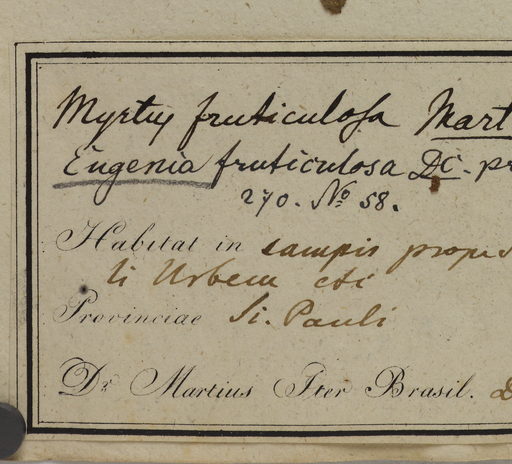 Myrtus fruticulosa Mart
Eugenia fruticulosa DC. pr
270. No 58.
Habitat in campis prope
Urbem
Provinciae Sti. Pauli
Dr. Martius Iter Brasil. D